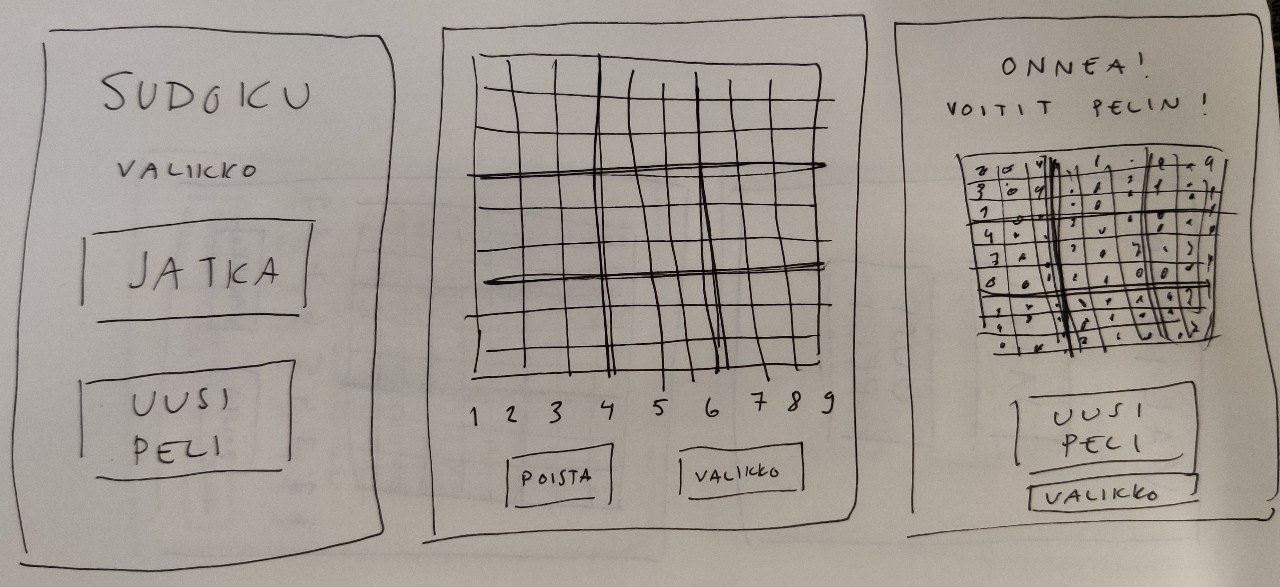 SUDOKU
VALIKKO
JATKA
UUSI
PELI
1 2 3 4 5 6 7 8 9
POISTA
VALIKKO
ONNEA!
VOITIT PELIN!
UUSI
PELI
VALIKKO